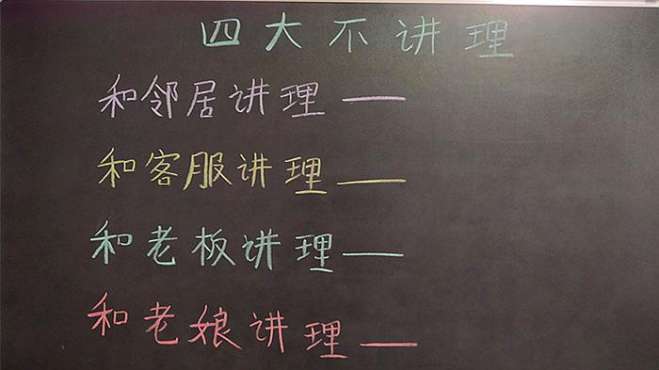 四大不讲理
和邻居讲理——
和客服讲理——
和老板讲理——
和老娘讲理——